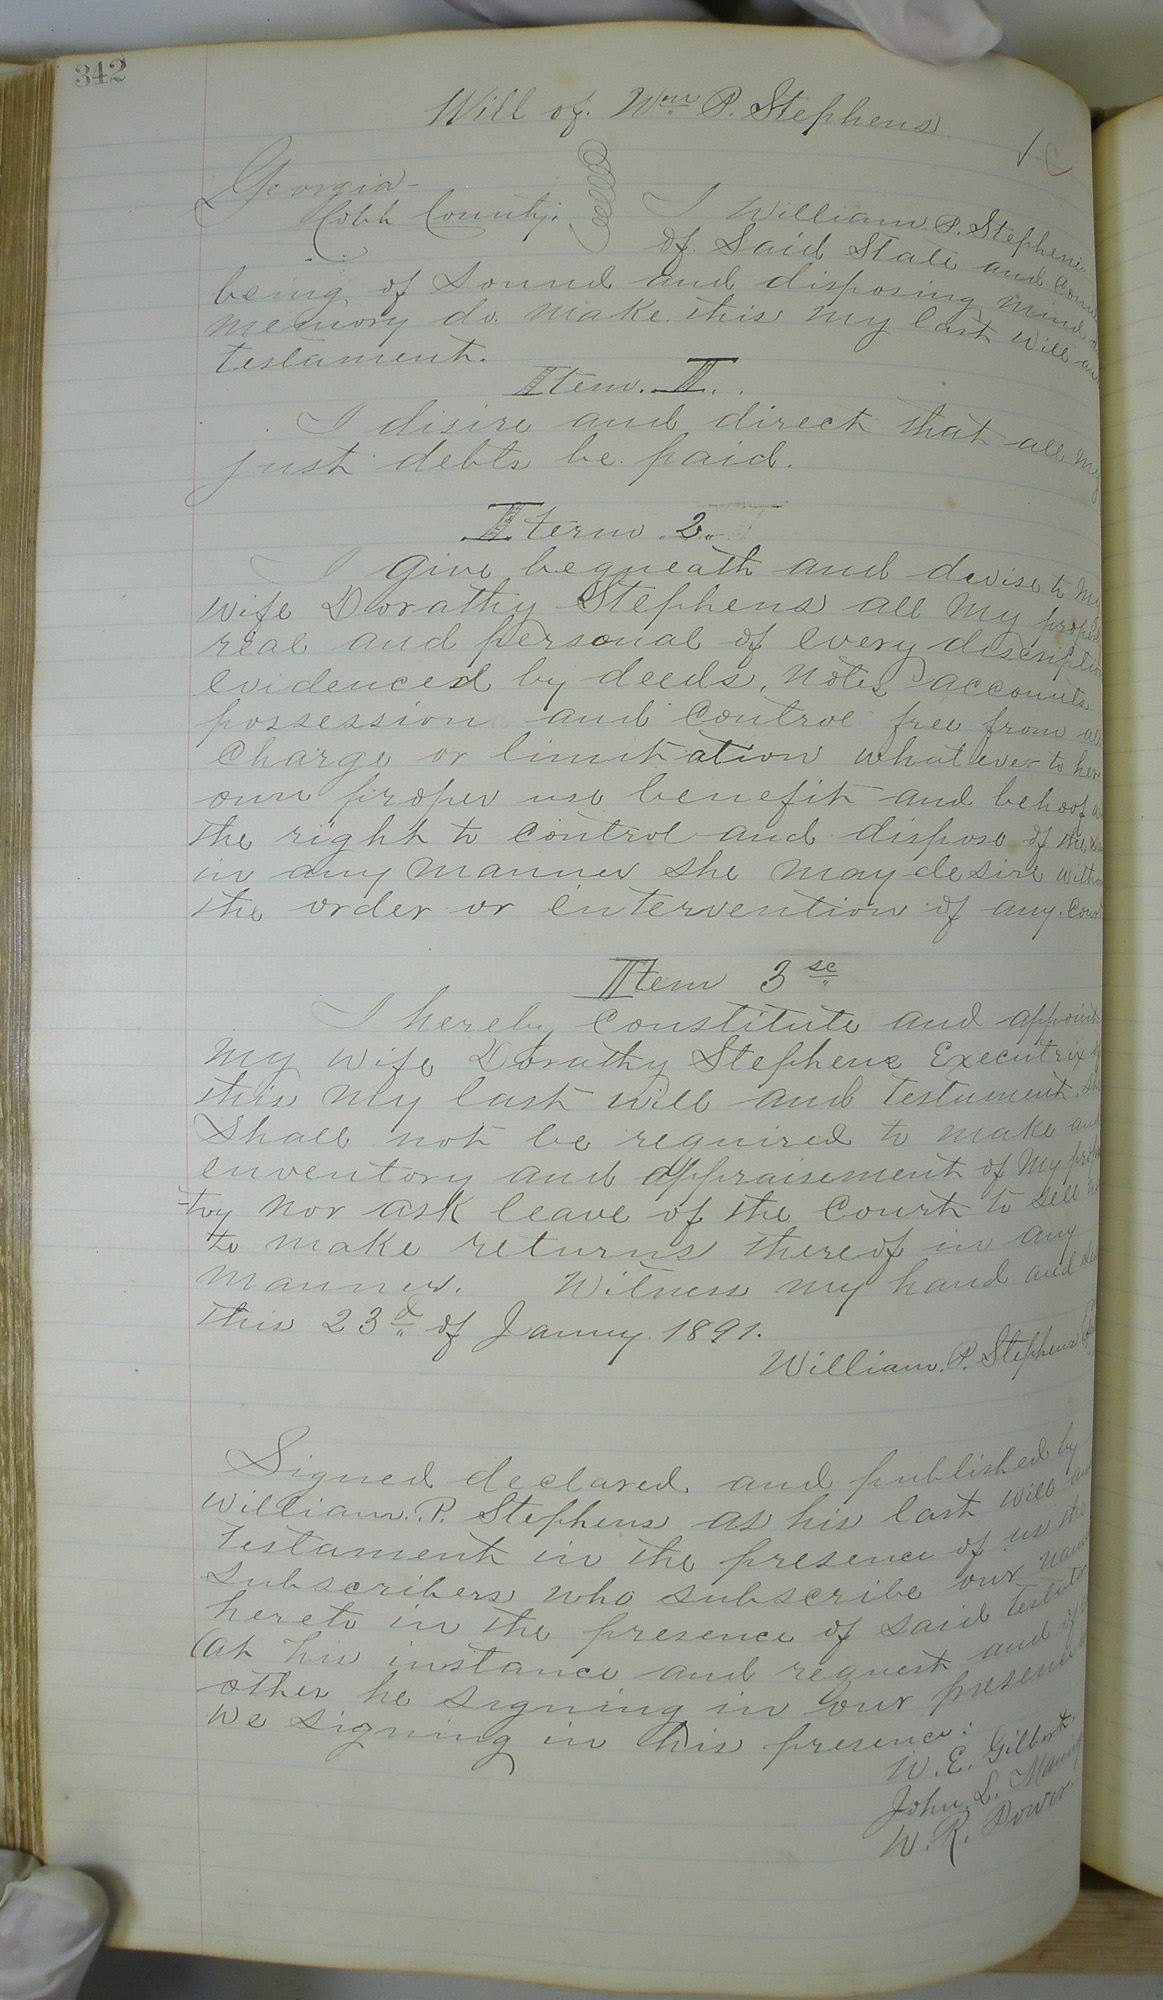 342
Will of Wm P. Stephens
Georgia
Cobb County.
I William. P. Stephens
of Said State and Coun
being of sound and disposing mind
memory do make this my last will an
testament.
Item. I.
I disire and direct that all my
just debts be paid.
Iterm 2.
I give bequeath and devise to my
wife Dorathy Stephens all my proper
real and personal of every descriptio
evidenced by deeds, notes accounts
possession and control free from al
charge or limitation whatever to her
own proper use benefit and behoof w
the right to control and dispose of the
in any manner she may desire witho
the order or intervention of any Cour
Item 3
I hereby constitute and appoint
my wife Dorathy Stephens Executrix
this my last will and testament. sh
shall not be required to make an
inventory and appraisement of my prope
-ty nor ask leave of the Court to sell
to make returns thereof in any
manner. Witness my hand and Se
this 23d of Janny. 1891.
William. P. Stephens
Signed declared and published by
William. P. Stephens as his last will an
testament in the presence of us the
subscribers who subscribe our names
hereto in the presence of said testator
(at his instance and request and of
other he signing in our presence
we signing in his presence:
W. E. Gilbert.
John. L. Manin
W. R. Power.